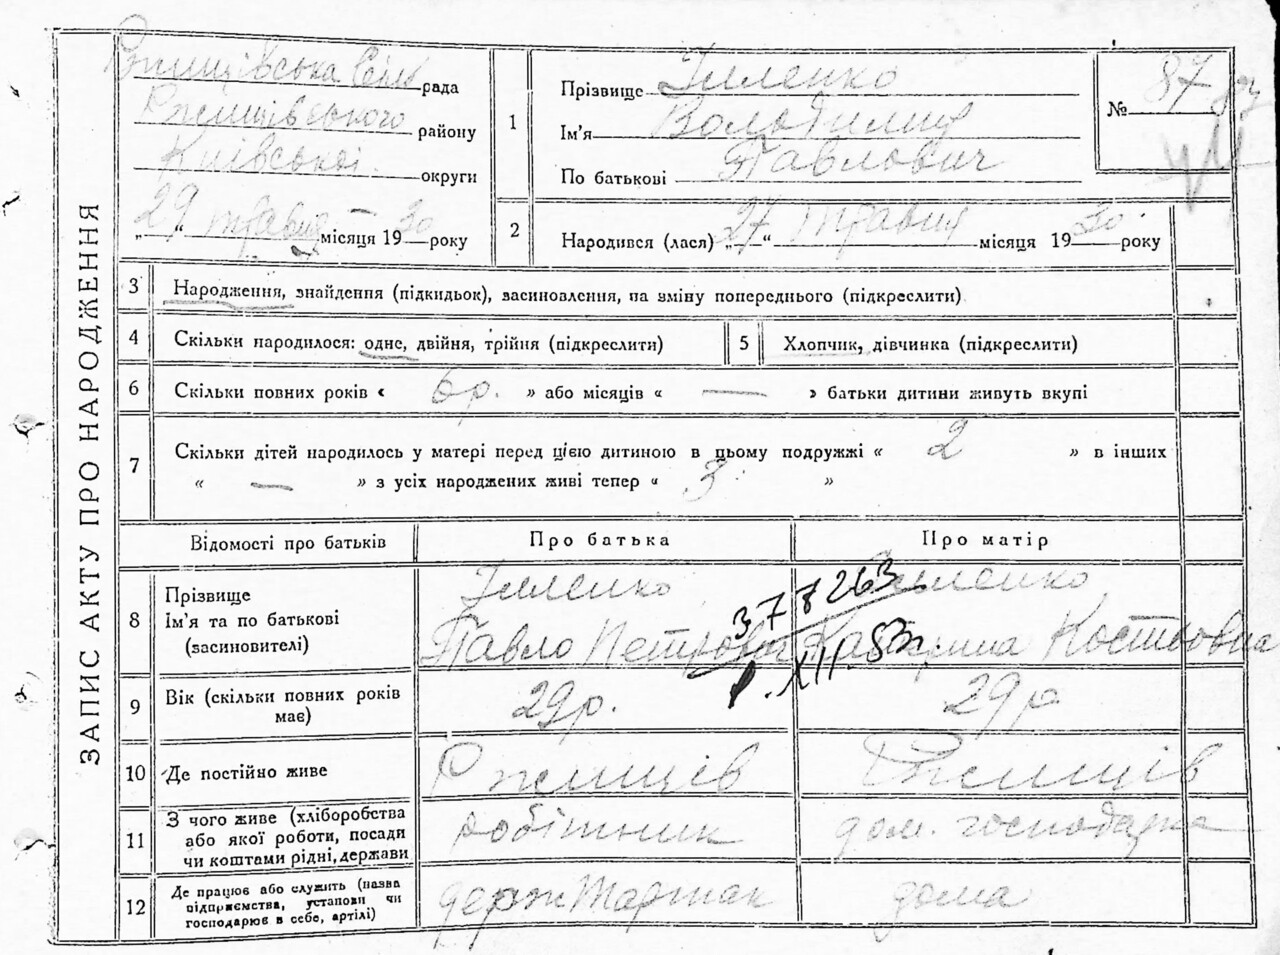 ЗАПИС АКТУ ПРО НАРОДЖЕННЯ
Ржищівська Сіль рада
Ржищівського району
Київської округи
„29" травня місяця 1930 року
1
Прізвище
Ім'я Володимир
По батькові Павлович
№ 87
2
Народився (лася) „27" травня місяця 1930 року
3
Народження, знайдення (підкидьок), засиновлення, на зміну попереднього (підкреслити)
4
Скільки народилося: одне, двійня, трійня (підкреслити)
5
Хлопчик, дівчинка (підкреслити)
6
Скільки повних років « 6 р. » або місяців « — » батьки дитини живуть вкупі
7
Скільки дітей народилось у матері перед цією дитиною в цьому подружжі « 2 » в інших
« — » з усіх народжених живі тепер « 3 »
Відомості про батьків
Про батька
Про матір
8
Прізвище
Ім'я та по батькові
(засиновителі)
Павло Петрович
Костьовна
377263
XII.83
9
Вік (скільки повних років
має)
29 р.
29 р.
10
Де постійно живе
Ржищів
Ржищів
11
З чого живе (хліборобства
або якої роботи, посади
чи коштами рідні, держави
робітник
дом. господарка
12
Де працює або служить (назва
підприємства, установи чи
господарює в себе, артілі)
держ
дома